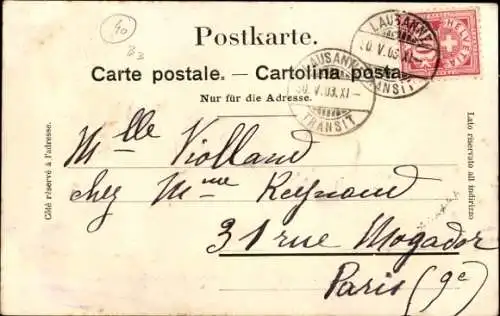 40
B3
Postkarte.
Carte postale. — Cartolina postale.
Nur für die Adresse.
LAUSANNE
30. V. 03. XI –
TRANSIT
LAUSANNE
30. V. 03. XI –
TRANSIT
10 HELVETIA
Côté réservé à l'adresse.
Lato riservato all indirizzo
Mlle Violland
chez Mme Reynond
31 rue Mogador
Paris (9e)